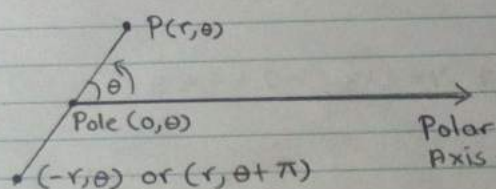 P(r,θ)
θ
Pole (0,θ)
Polar
Axis
(-r,θ) or (r,θ+π)